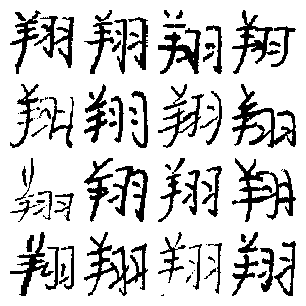 翔翔翔翔
翔翔翔翔
翔翔翔翔
翔翔翔翔